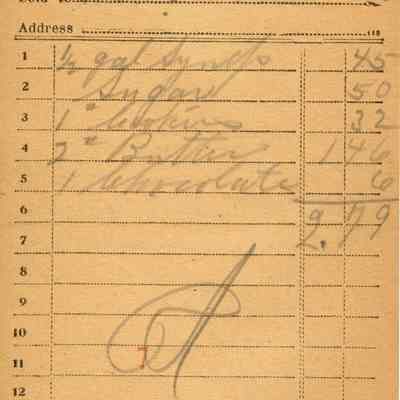 Address 118
1 1/2 gal Syrup 45
2 Sugar 50
3 1 # Cookies 32
4 2 # Butter 1 46
5 1 Chocolate 6
6
7 2.79
8
9
10
11 7
12